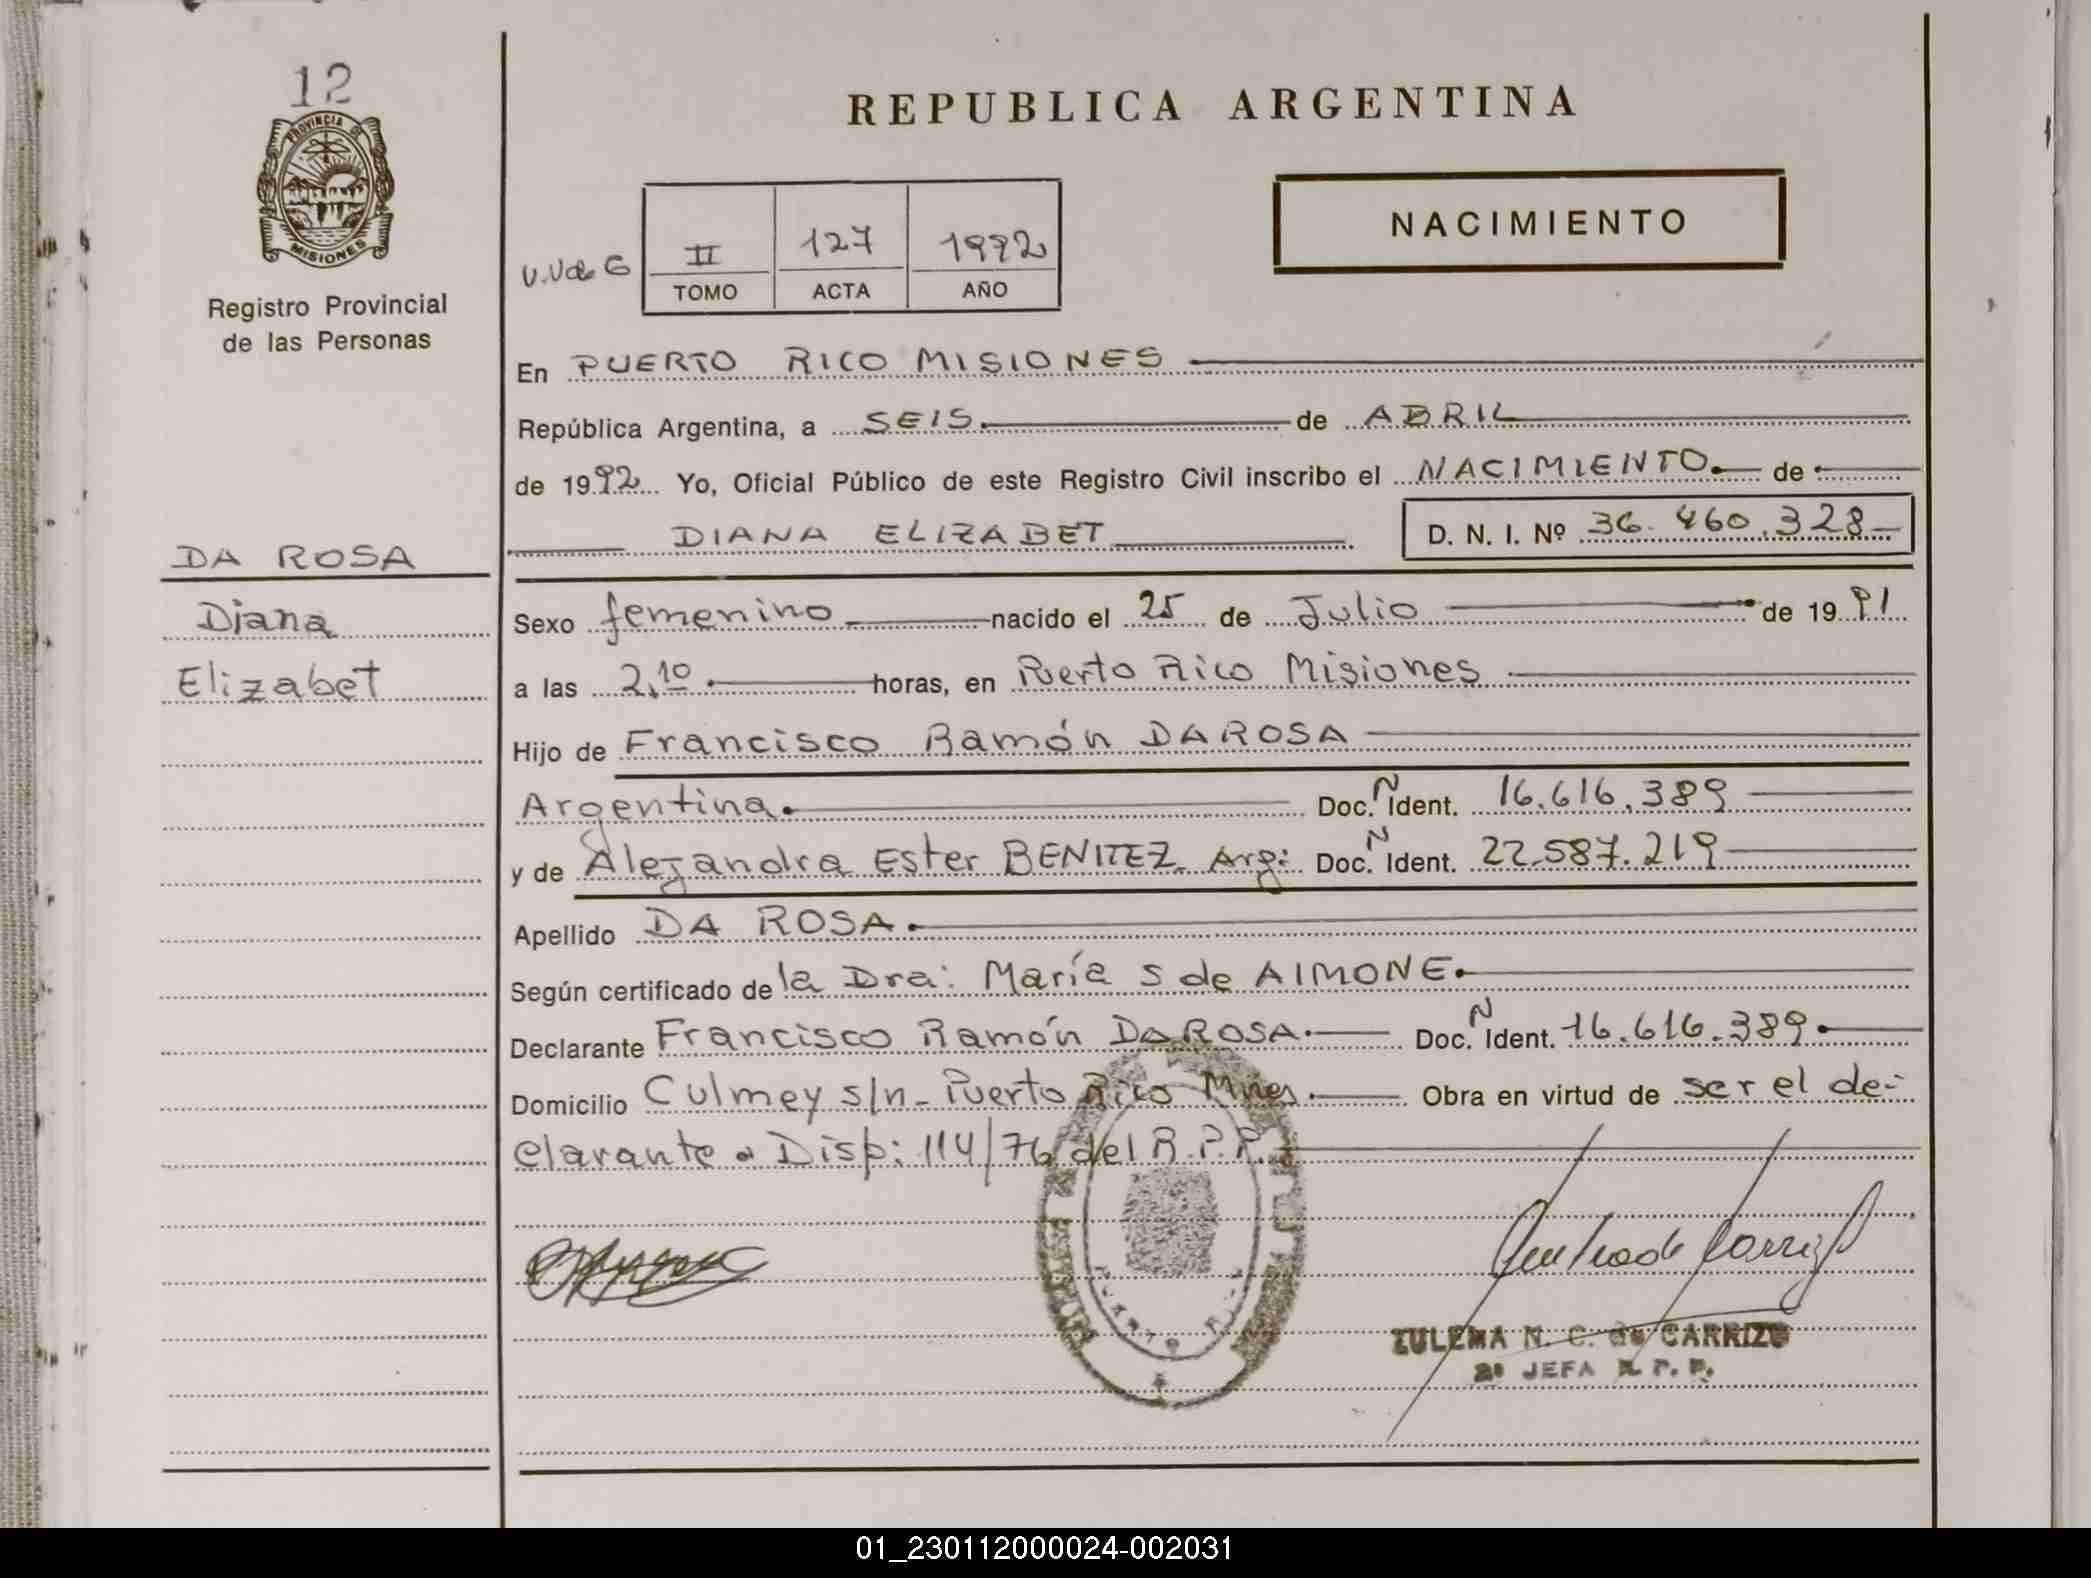 12
PROVINCIA DE
MISIONES
Registro Provincial
de las Personas
DA ROSA
Diana
Elizabet
REPUBLICA ARGENTINA
NACIMIENTO
II 127 1992
TOMO ACTA AÑO
En PUERTO RICO MISIONES
República Argentina, a SEIS. de ABRIL
de 1992 Yo, Oficial Público de este Registro Civil inscribo el NACIMIENTO. de
DIANA ELIZABET D. N. I. Nº 36.460.328
Sexo femenino nacido el 25 de Julio de 1991
a las 2,10 horas, en Puerto Rico Misiones
Hijo de Francisco Ramón DA ROSA
Argentina. Doc. N Ident. 16.616.389
y de Alejandra Ester BENITEZ Arg: Doc. N Ident. 22.587.219
Apellido DA ROSA.
Según certificado de la Dra: María S de AIMONE.
Declarante Francisco Ramón DA ROSA. Doc. N Ident. 16.616.389.
Domicilio Culmey s/n - Puerto Rico Mnes. Obra en virtud de ser el de-
clarante. Disp: 114/76 del R.P.P.
ZULEMA N. C. de CARRIZO
2ª JEFA R. P. P.
01_230112000024-002031